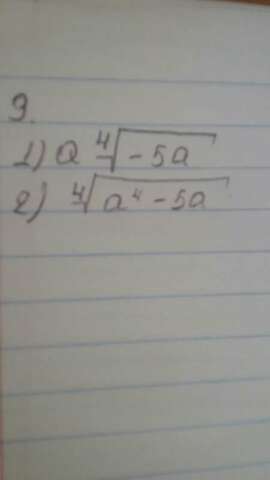 9.
1) a ∜-5a
2) ∜a⁴-5a